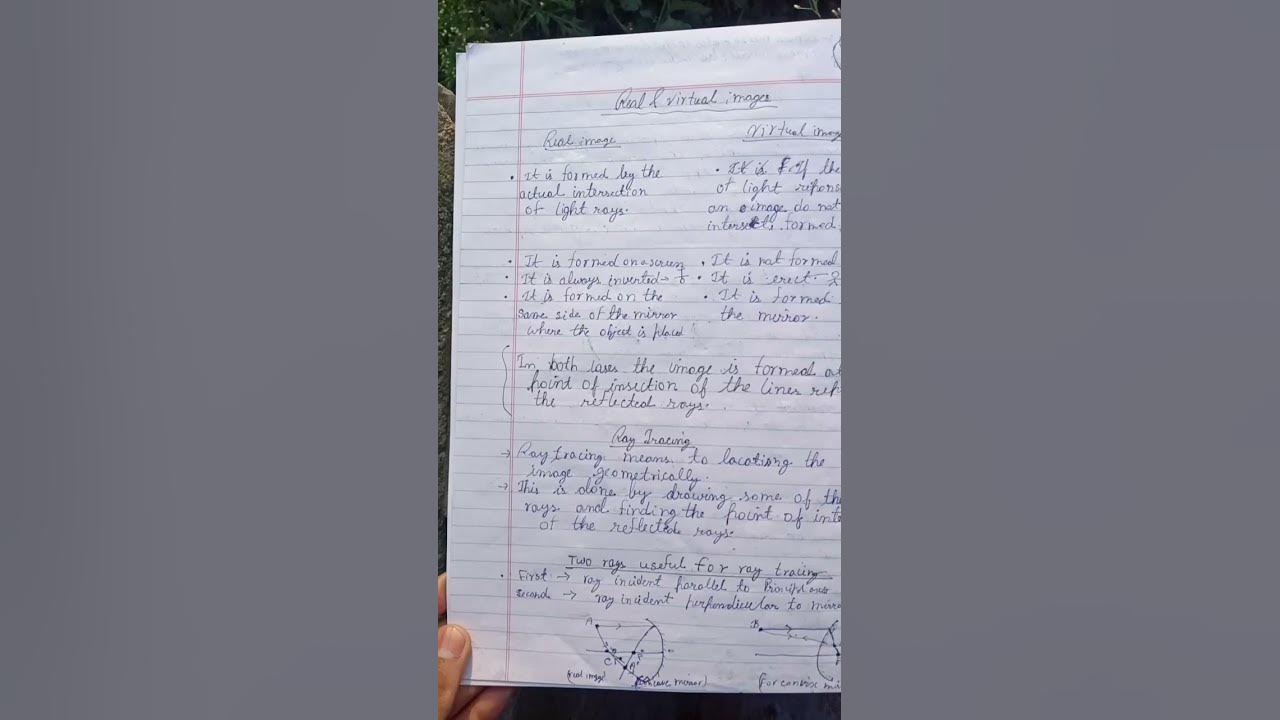 Real & virtual images
Real image
Virtual imag
• It is formed by the
actual intersection
of light rays.
• It is f. If the
of light
an image do not
intersect, formed
• It is formed on a screen
• It is always inverted →
• It is formed on the
same side of the mirror
where the object is placed
• It is not formed
• It is erect →
• It is formed
the mirror.
In both cases the image is formed at
point of insection of the lines rep
the reflected rays.
Ray Tracing
→ Ray tracing means to locationg the
image geometrically.
→ This is done by drawing some of the
rays and finding the point of inte
of the reflected rays.
Two rays useful for ray tracing
• First → ray incident parallel to
second → ray incident perpendicular to mirro
A
C
F
(real image)
(concave mirror)
B
F
(For convex mi